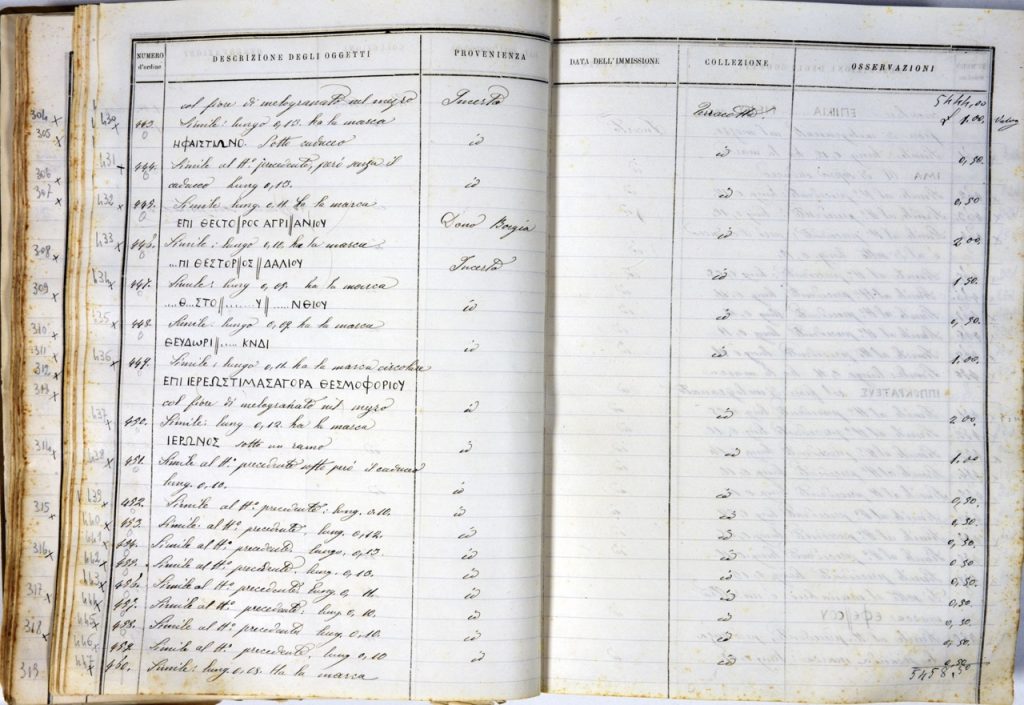 NUMERO d'ordine DESCRIZIONE DEGLI OGGETTI PROVENIENZA DATA DELL'IMMISSIONE COLLEZIONE OSSERVAZIONI
5444,00
col fiore di melogranato nel mezzo Incerta Terracotte £ 1.00
443. Simile: lungo 0,13. ha la marca
ΗΦΑΙΣΤΙΩΝΟ. Sotto caduceo id id 0,50
444. Simile al N.º precedente, però senza il
caduceo lung. 0,13. id id 0,50
445. Simile lung. 0,11. ha la marca
ΕΠΙ ΘΕΣΤΟ||ΡΟΣ ΑΓΡΙ||ΑΝΙΟΥ Dono Borgia id 2,00
446. Simile: lungo 0,11. ha la marca
...ΠΙ ΘΕΣΤΟΡ||ΟΣ||ΔΑΛΙΟΥ Incerta id 1,50
447. Simile: lung. 0,08. ha la marca
....Θ..ΣΤΟ||........Υ||......ΝΘΙΟΥ id id 0,50
448. Simile: lungo 0,12 ha la marca
ΘΕΥΔΩΡΙ||..... ΚΝΔΙ id id 1,00
449. Simile: lungo 0,11. ha la marca circolare
ΕΠΙ ΙΕΡΕΩΣΤΙΜΑΣΑΓΟΡΑ ΘΕΣΜΟΦΟΡΙΟΥ
col fiore di melogranato nel mezzo id id 2,00
450. Simile: lung. 0,12. ha la marca
ΙΕΡΩΝΟΣ sotto un ramo id id 1,00
451. Simile al N.º precedente sotto però il caduceo
lung. 0,10. id id 0,50
452. Simile al N.º precedente: lung. 0,11. id id 0,50
453. Simile al N.º precedente, lung. 0,12. id id 0,50
454. Simile al N.º precedente. lungo, 0,13. id id 0,50
455. Simile al N.º precedente. lung. 0,10. id id
456. Simile al N.º precedente, lung. 0, 11. id id 0,50
457. Simile al N.º precedente. lung. 0, 10. id id 0,50
458. Simile al N.º precedente, lung. 0,10. id id
459. Simile al N.º precedente, lung. 0,10 id id 0,50
460. Simile: lung. 0,08. Ha la marca
5458,50
304 x
305 x
306 x
307 x
308 x
309 x
310 x
311 x
312 x
313 x
314 x
315 x
316 x
317 x
318 x
319
430 x
431
432 x
433 x
434 x
435 x
436 x
437 x
438 x
439 x
440 x
441 x
442 x
443 x
444 x
445 x
446 x
447 x